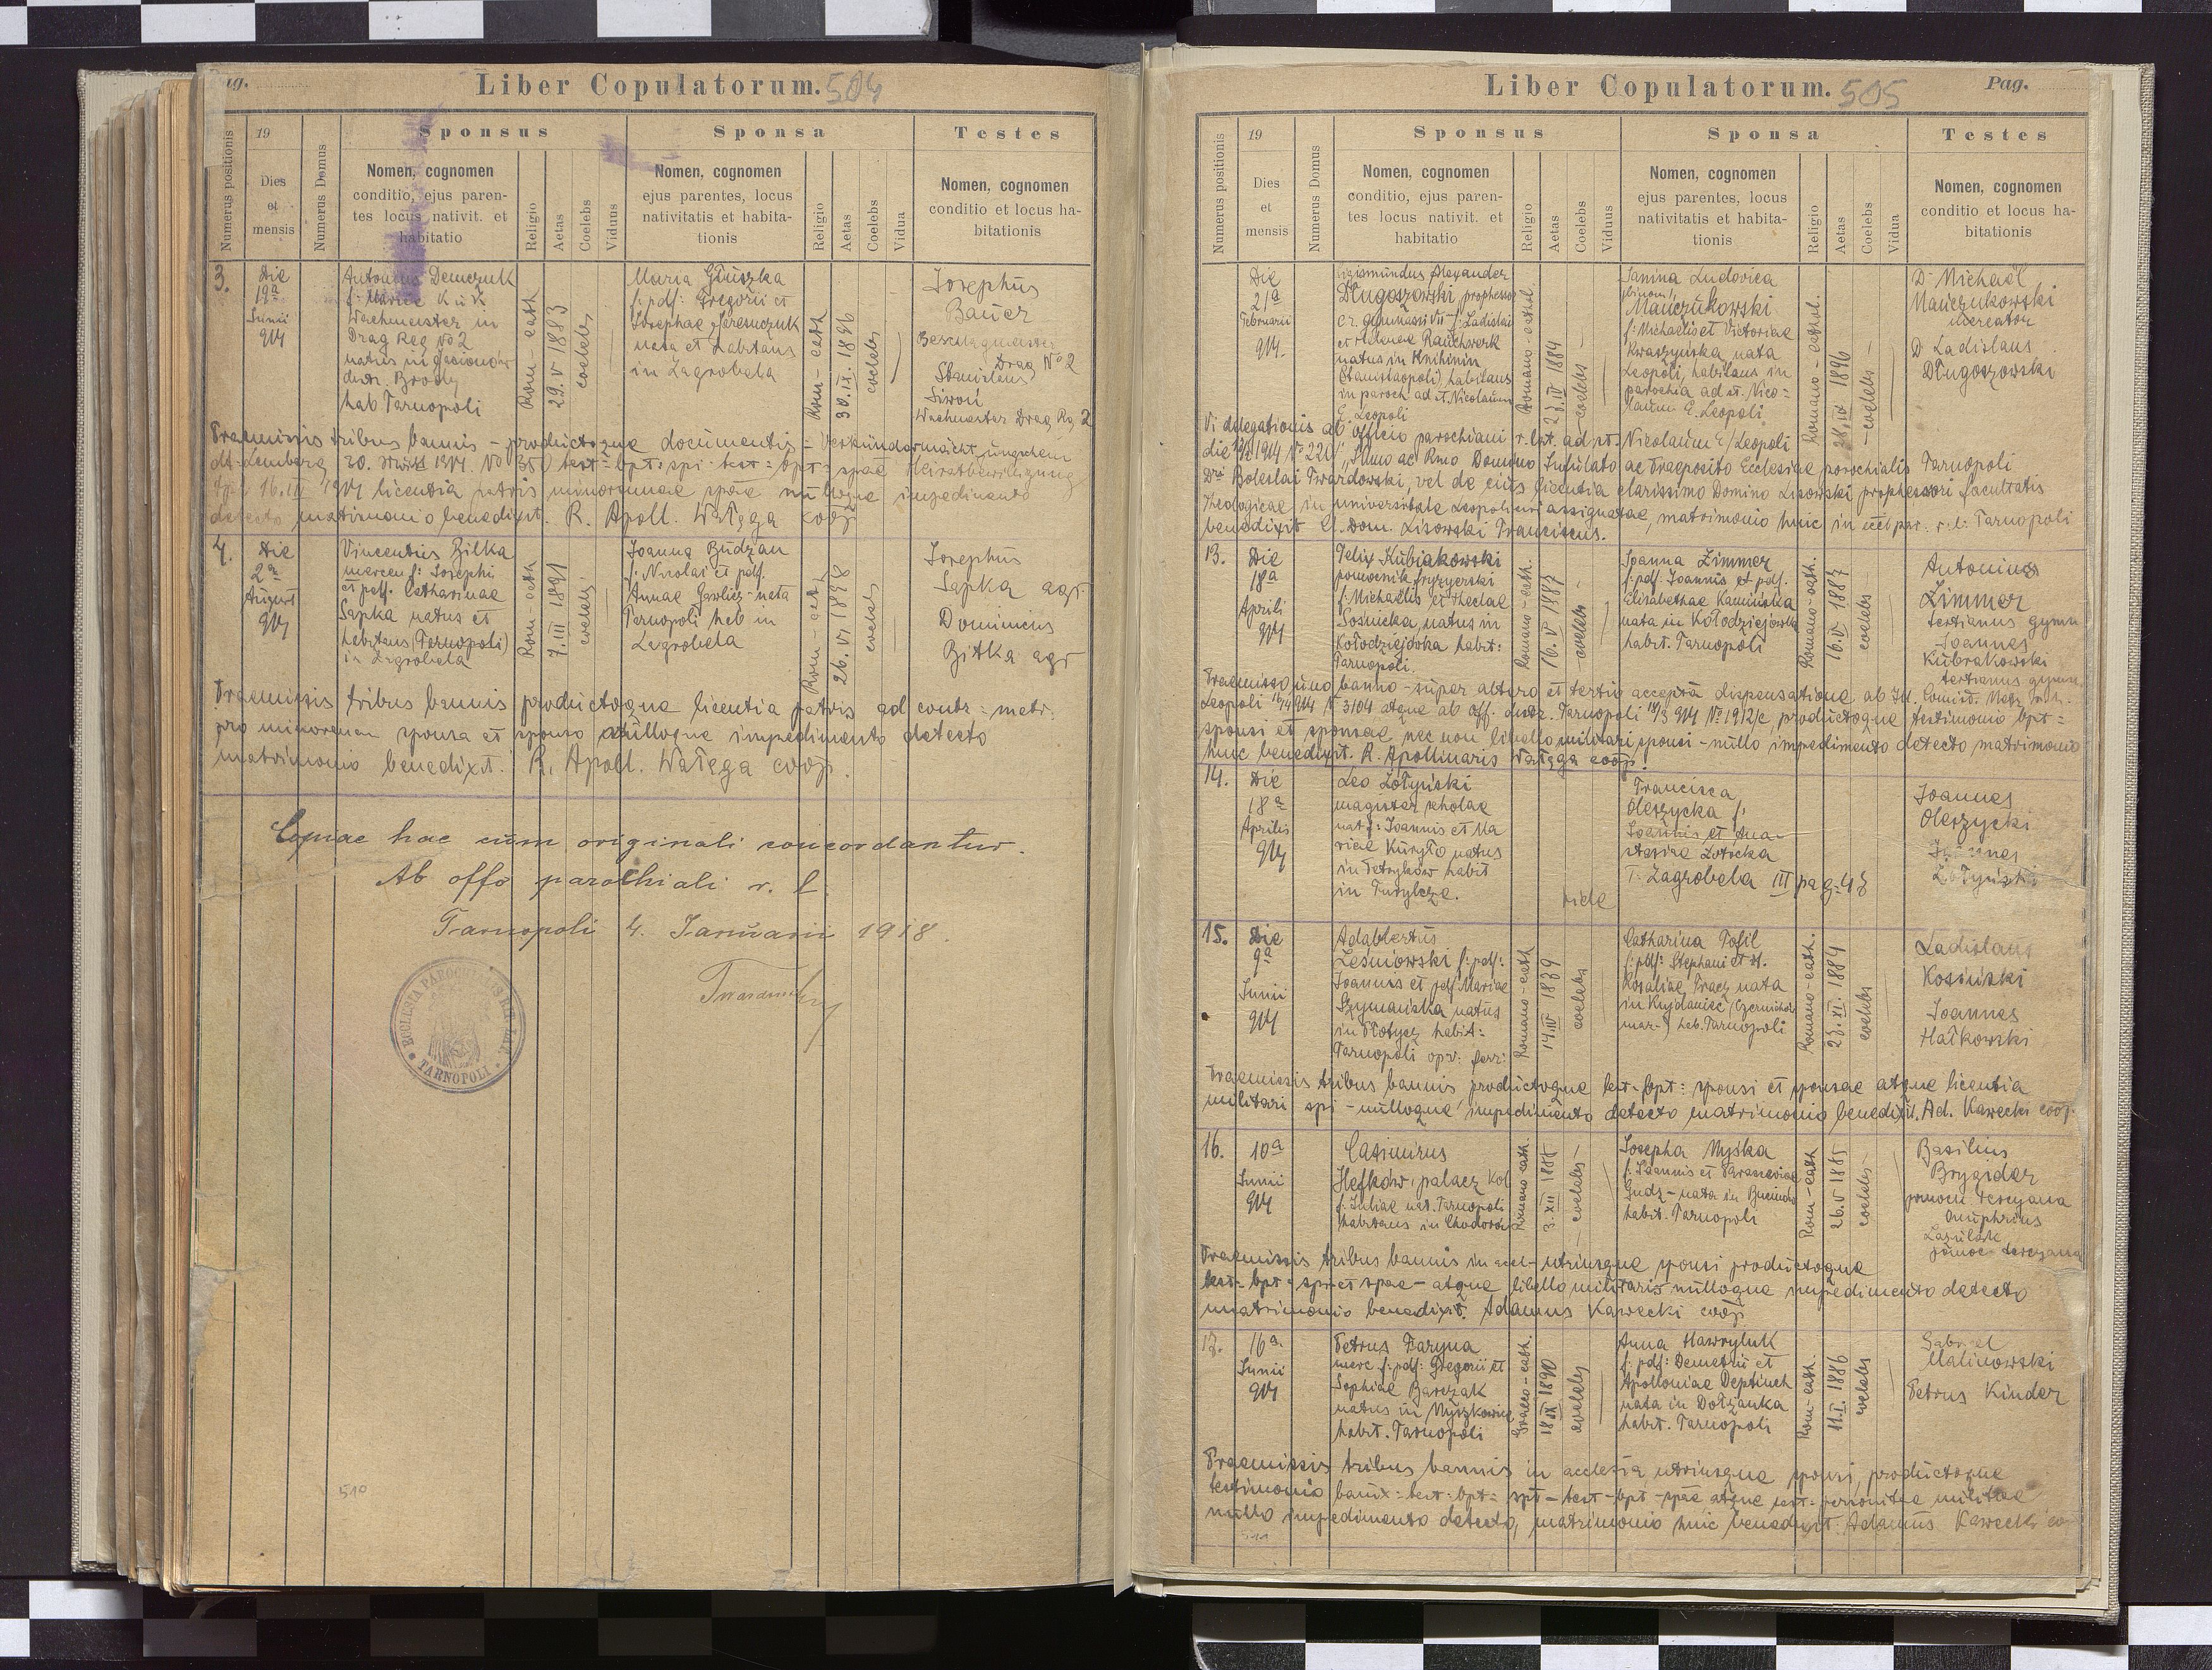 Pag.
Liber Copulatorum. 504
Numerus positionis
19
Dies
et
mensis
Numerus Domus
Sponsus
Nomen, cognomen
conditio, ejus paren-
tes locus nativit. et
habitatio
Religio
Aetas
Coelebs
Viduus
Sponsa
Nomen, cognomen
ejus parentes, locus
nativitatis et habita-
tionis
Religio
Aetas
Coelebs
Vidua
Testes
Nomen, cognomen
conditio et locus ha-
bitationis
3.
Die
19a
Junii
914
Antonius Demczuk
f: Mariae K u K
Wachmeister in
Drag Reg No 2
natus in
distr. Brody
hab Tarnopoli
Rom-cath
29.V 1883
coelebs
Maria Głuszka
f: pdf: Gregorii et
Josephae Jaresuczuk
nata et habitans
in Zagrobela
Rom-cath
30.IX.1896
coelebs
Josephus
Bauer
Beschlagmeister
Drag No 2
Stanislaus
Siwoń
Wachmeister Drag Rg 2
Praemissis tribus bannis - productisque documentis -
dt Lemberg 30. 1914. No 350 test = bpt: spi test = bpt = spae Heiratbewilligung
16.IV 1914 licentia patris minorennae spae nulloque impedimento
detecto matrimonio benedixit. R. Apoll. Wałęga coop
4.
Die
2a
August
914
Vincentius Bilka
mercen f: Josephi
et pdf. Catharinae
Sapka natus et
habitans (Tarnopoli)
in Zagrobela
Rom-cath
7.III 1891
coelebs
Joanna Budzan
f: Nicolai et pdf.
Annae Gawlicz - nata
Tarnopoli hab in
Zagrobela
Rom-cath
26.VI 1898
coelebs
Josephus
Sapka agr.
Dominicus
Bitka agr
Praemissis tribus bannis productoque licentia patris ad contr: matr:
pro minorenen sponsa et sponso nulloque impedimento detecto
matrimonio benedixit. R. Apoll. Wałęga coop.
Copiae hae cum originali concordantur.
Ab offo parochiali r. l.
Tarnopoli 4. Januarii 1918.
Twardowski
ECCLESIA PAROCHIALIS RIT. LAT.
TARNOPOLI
510
Liber Copulatorum. 505
Pag.
Numerus positionis
19
Dies
et
mensis
Numerus Domus
Sponsus
Nomen, cognomen
conditio, ejus paren-
tes locus nativit. et
habitatio
Religio
Aetas
Coelebs
Viduus
Sponsa
Nomen, cognomen
ejus parentes, locus
nativitatis et habita-
tionis
Religio
Aetas
Coelebs
Vidua
Testes
Nomen, cognomen
conditio et locus ha-
bitationis
Die
21a
Februarii
914.
Sigismundus Alexander
Długoszowski prophessor
c.r. gymnasii VII - f: Ladislai
et Helenae Rauchwerk
natus in Knihinin
(Stanislaopoli) habitans
in paroch ad st. Nicolaum
E. Leopoli
Romano-cathol.
coelebs
Janina Ludovica
Mańczukowski
f: Michaelis et Victoriae
Kwaszyńska nata
Leopoli, habitans in
parochia ad st. Nico=
laum E. Leopoli
Romano-cathol.
28.IX 1896
coelebs
Dr Michael
Mańczukowski
mercator
Dr Ladislaus
Długoszowski
Vi delegationis ab officio parochiani r. lat. ad st. Nicolaum E/Leopoli
die 1914 No 220 Illmo ac Rmo Domino Infulato ac Praeposito Ecclesiae parochialis Tarnopoli
Dri Boleslai Twardowski, vel de eius licentia clarissimo Domino Lisowski prophessori facultatis
Theologicae in universitate Leopoliensi assignatae, matrimonio huic in eccl par. r. l: Tarnopoli
benedixit Cl. Dom. Lisowski Franciscus.
13.
Die
18a
Aprili
914
Felix Kubiakowski
pomocnik fryzyerski
f: Michaelis et Theclae
Sośnicka, natus in
Kołodziejówka habit:
Tarnopoli.
Romano-cath.
16.V 1887
coelebs
Joanna Zimmer
f: pdf. Joannis et pdf.
Elisabethae Kamińska
nata in Kołodziejówka
habit. Tarnopoli
Romano-cath.
16.V 1887
coelebs
Antonius
Zimmer
tertianus gymn
Joannes
Kubiakowski
tertianus gymn.
Praemisso uno banno - super altero et tertio accepta dispensatione ab
Leopoli 16/4 914 N 3104 atque ab off. distr. Tarnopoli 18/3 914 No 1912/c, productoque testimonio bpt =
sponsi et sponsae nec non libello militari sponsi - nullo impedimento detecto matrimonio
huic benedixit. R. Apollinaris Wałęga coop.
14.
Die
18a
Aprilis
914
Leo Zołyński
magister scholae
nat f: Joannis et Ma
riae Kuryło natus
in Petryków habit
in Turylcze.
vide
Francisca
Oleszycka f:
Joannis et Ana-
stasiae Zotocka
T. Zagrobela III pag. 48
Joannes
Oleszycki
Joannes
Zołyński
15.
Die
9a
Junii
914
Adalbertus
Leśniowski f: pdf:
Joannis et pdf. Mariae
Szymańska natus
in Płotycz habit=
Tarnopoli opr: ferr:
Romano-cath
14.IV 1889
coelebs
Catharina Tofil
f: pdf: Stephani et st.
Rosaliae Tracz nata
in Kujdaniec (Czernichow
mar-) hab. Tarnopoli
Romano-cath.
25.XI.1884
coelebs
Ladislaus
Kosiński
Joannes
Hałkowski
Praemissis tribus bannis productoque test-bpt: sponsi et sponsae atque licentia
militari spi - nulloque impedimento detecto matrimonio benedixit. Ad. Kawecki coop.
16.
10a
Junii
914
Casimirus
Hefków, palacz kol
f: Juliae nat. Tarnopoli
habitans in Chodorów
Romano-cath.
3.XII 1888
coelebs
Josepha Myśka
f: Joannis et Parasceviae
Gudz - nata in Bucniów
habit. Tarnopoli
Rom-cath
26.V 1885
coelebs
Basilius
Brygider
pomocn tercyana
Onuphrius
pomoc tercyana
Praemissis tribus bannis in eccl- utriusque sponsi productoque
test= bpt= spi et spae - atque libello militaris nulloque impedimento detecto
matrimonio benedixit. Adamus Kawecki coop.
17.
16a
Junii
914
Petrus Faryna
merc f: pdf: Gregorii et
Sophiae Barczak
natus in Myszkowice
habit. Tarnopoli
Graeco-cath.
18 IX 1890
coelebs
Anna Hawryluk
f: pdf: Demetrii et
Apolloniae Deptinch
nata in Dołżanka
habit. Tarnopoli
Rom-cath.
11.I.1886
coelebs
Gabriel
Malinowski
Petrus Kinder
Praemissis tribus bannis in ecclesia utriusque sponsi, productoque
testimonio bann=test=bpt= spi - test-bpt-spae atque militae
nullo impedimento detecto, matrimonio huic benedixit Adamus Kawecki